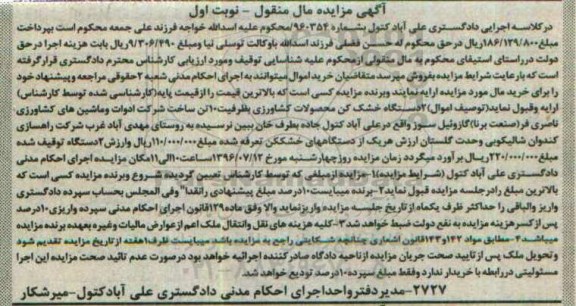 آگهی مزایده مال منقول - نوبت اول
درکلاسه اجرایی دادگستری علی آباد کتول بشماره ۹۶۰۳۵۴/محکوم علیه اسدالله خواجه فرزند علی جمعه محکوم است بپرداخت
مبلغ۱۸۶/۱۳۹/۸۰۰ریال در حق محکوم له حسن فضلی فرزند اسدالله باوکالت توسلی نیا ومبلغ ۹/۳۰۶/۴۹۰ریال بابت هزینه اجرا در حق
دولت درراستای استیفای محکوم به مال منقولی ازمحکوم علیه شناسایی توقیف ومورد ارزیابی کارشناس محترم دادگستری قرارگرفته
است که بارعایت شرایط مزایده بفروش میرسد متقاضیان خرید اموال میتوانند به اجرای احکام مدنی شعبه ۲حقوقی مراجعه وپیشنهاد خود
را برای خرید مال مورد مزایده ارایه نمایند وبرنده مزایده کسی است که بالاترین قیمت را ازقیمت پایه(کارشناسی شده توسط کارشناس)
ارایه وقبول نماید(توصیف اموال)۲دستگاه خشک کن محصولات کشاورزی بظرفیت۱۰تن ساخت شرکت ادوات وماشین های کشاورزی
ناصری فر(صنعت برنا)گازوئیل سوز واقع درعلی آباد کتول جاده بطرف خان ببین نرسیده به روستای مهدی آباد غرب شرکت راهسازی
کندوان شالیکوبی وحدت گلستان ارزش هریک از دستگاههای خشککن تعرفه شده مبلغ۱۱۰/۰۰۰/۰۰۰ریال وارزش ۲دستگاه توقیف شده
۲۲۰/۰۰۰/۰۰۰ریال بر آورد میگردد زمان مزایده روزچهارشنبه مورخ ۱۳۹۶/۰۷/۱۲ساعت۱۰الی۱۱مکان مزایده اجرای احکام مدنی
دادگستری علی آباد کتول (شرایط مزایده)۱-مزایده ازمبلغی که توسط کارشناس تعیین گردیده شروع وبرنده مزایده کسی است که
بالاترین مبلغ رادرجلسه مزایده قبول نماید۲-برنده میبایست۱۰درصد مبلغ پیشنهادی رانقدا" وفی المجلس بحساب سپرده دادگستری
واریز والباقی را حداکثر ظرف یکماه از تاریخ جلسه مزایده واریزنماید والا وفق ماده۱۲۹قانون اجرای احکام مدنی سپرده واریزی۱۰درصد
پس از کسرهزینه مزایده به نفع دولت ضبط خواهد شد۳-کلیه هزینه های نقل وانتقال ملک اعم از عوارض مالیات وغیره بعهده برنده مزایده
میباشد۴-مطابق مواد ۱۴۲و۱۴۳قانون اشعاری چنانچه شکایتی راجع به مزایده باشد میبایست ظرف۱هفته از تاریخ مزایده تقدیم شود
و تحویل ملک پس از تایید صحت جریان مزایده ازناحیه دادگاه صادر کننده اجرائیه خواهد بود درصورت عدم تائید صحت مزایده این اجرا
مسئولیتی دررابطه با خریدار ندارد وفقط مبلغ سپرده۱۰درصد تودیع خواهد شد.
۲۷۲۷-مدیردفترواحداجرای احکام مدنی دادگستری علی آبادکتول-میرشکار